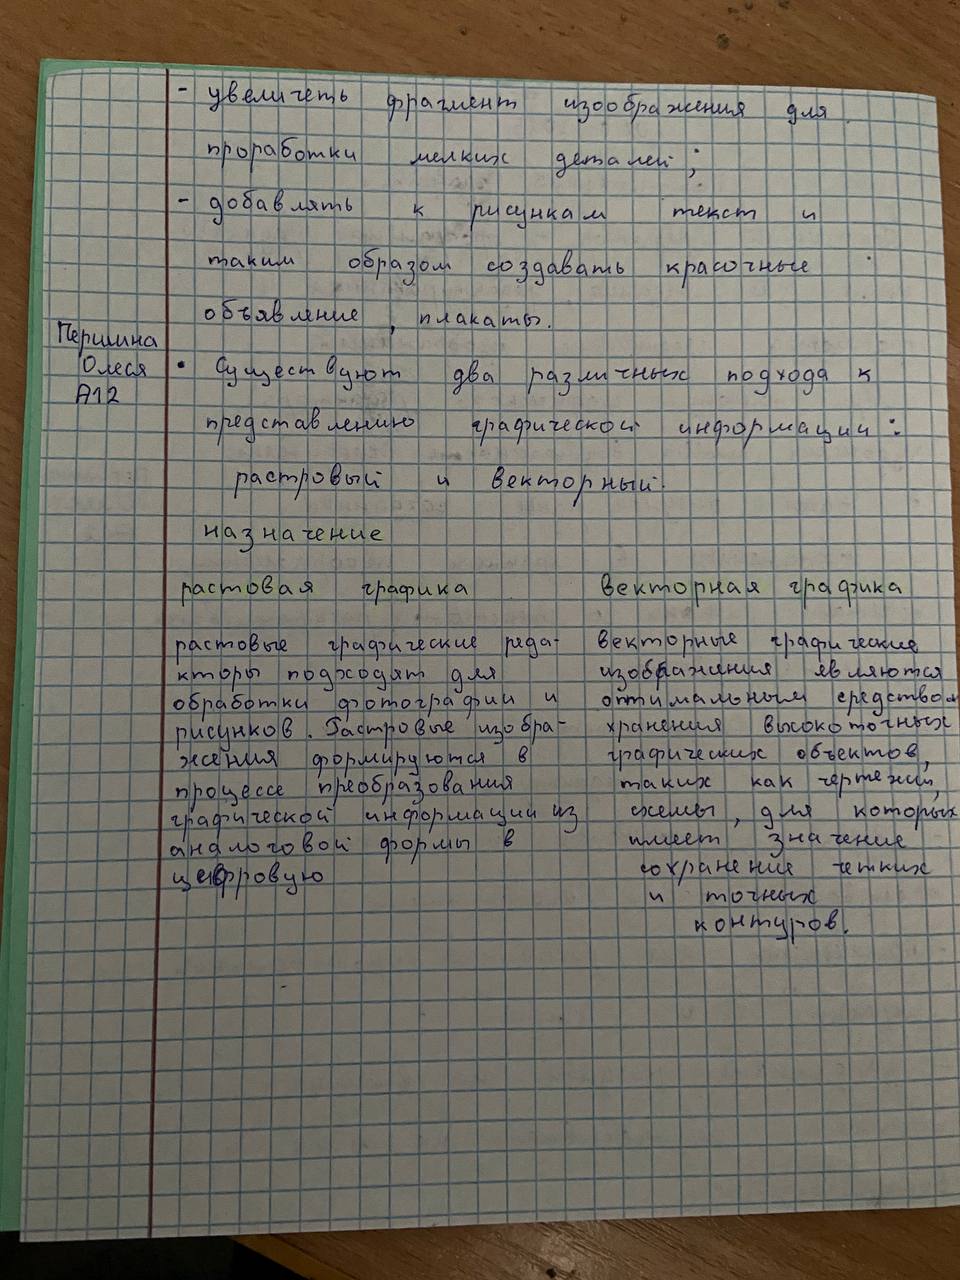 - увеличеть фрагмент изображения для
проработки мелких деталей;
- добавлять к рисункам текст и
таким образом создавать красочные
объявление, плакаты.
Першина
Олеся
А12
• Существуют два различных подхода к
представлению графической информации:
растровый и векторный.
назначение
растовая графика
растовые графические реда-
кторы подходят для
обработки фотографии и
рисунков. Растровые изобра-
жения формируются в
процессе преобразования
графической информации из
аналоговой формы в
цифровую
векторная графика
векторные графические
изображения являются
оптимальным средством
хранения высокоточных
графических объектов,
таких как чертежи,
схемы, для которых
имеет значение
сохранение четких
и точных
контуров.